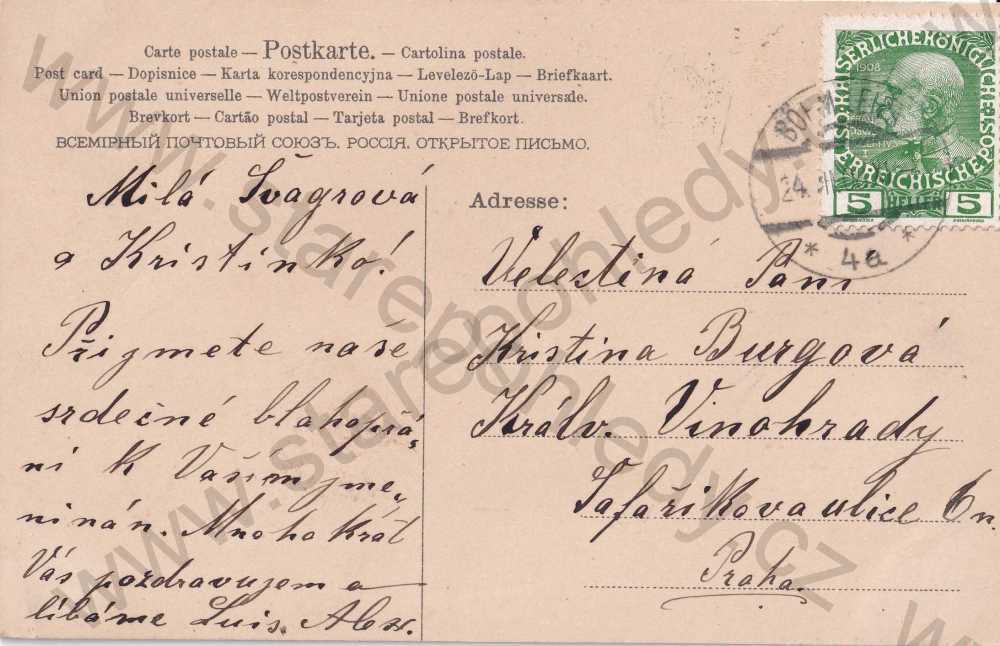 Carte postale — Postkarte. — Cartolina postale.
Post card — Dopisnice — Karta korespondencyjna — Levelező-Lap — Briefkaart.
Union postale universelle — Weltpostverein — Unione postale universale.
Brevkort — Cartão postal — Tarjeta postal — Brefkort.
ВСЕМІРНЫЙ ПОЧТОВЫЙ СОЮЗЪ. РОССІЯ. ОТКРЫТОЕ ПИСЬМО.
Milá Švagrová
a Kristinko!
Přijmete naše
srdečné blahopřá,
ní k Vašim jme,
ninán. Mnoho krát
Vás pozdravujem a
líbáme Luis. Alex.
Adresse:
Velectěná Paní
Kristina Burgová
Králv. Vinohrady
Šafaříkova ulice 6n.
Praha.
1908
5 HELLER 5
24
* 4a *
www.starepohledy.cz